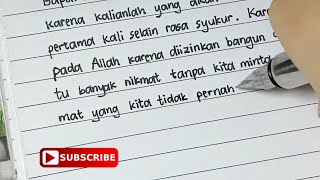 karena kalianlah yang
pertama kali selain rasa syukur.
pada Allah karena diizinkan bangun
tu banyak nikmat tanpa kita minta
mat yang kita tidak pernah
SUBSCRIBE